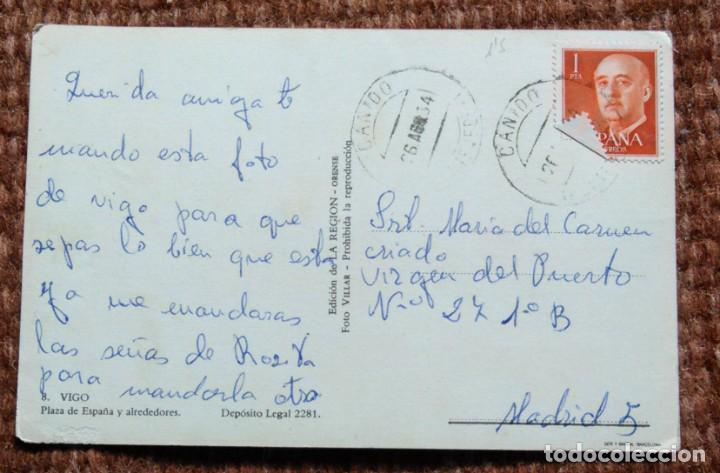 Querida amiga te
mando esta foto
de vigo para que
sepas lo bien que esta
ya me mandaras
las señas de Rosita
para mandarla otra
8. VIGO
Plaza de España y alrededores. Depósito Legal 2281.
Edición de LA REGION - ORENSE
Foto VILLAR - Prohibida la reproducción
1'5
CANIDO
26 ABR. 64
CANIDO
26
1
PTA
ESPAÑA
CORREOS
Srt. Maria del Carmen
criado
Virgen del Puerto
N.º 27 1.º B
Madrid 5
todocoleccion
todocoleccion.net